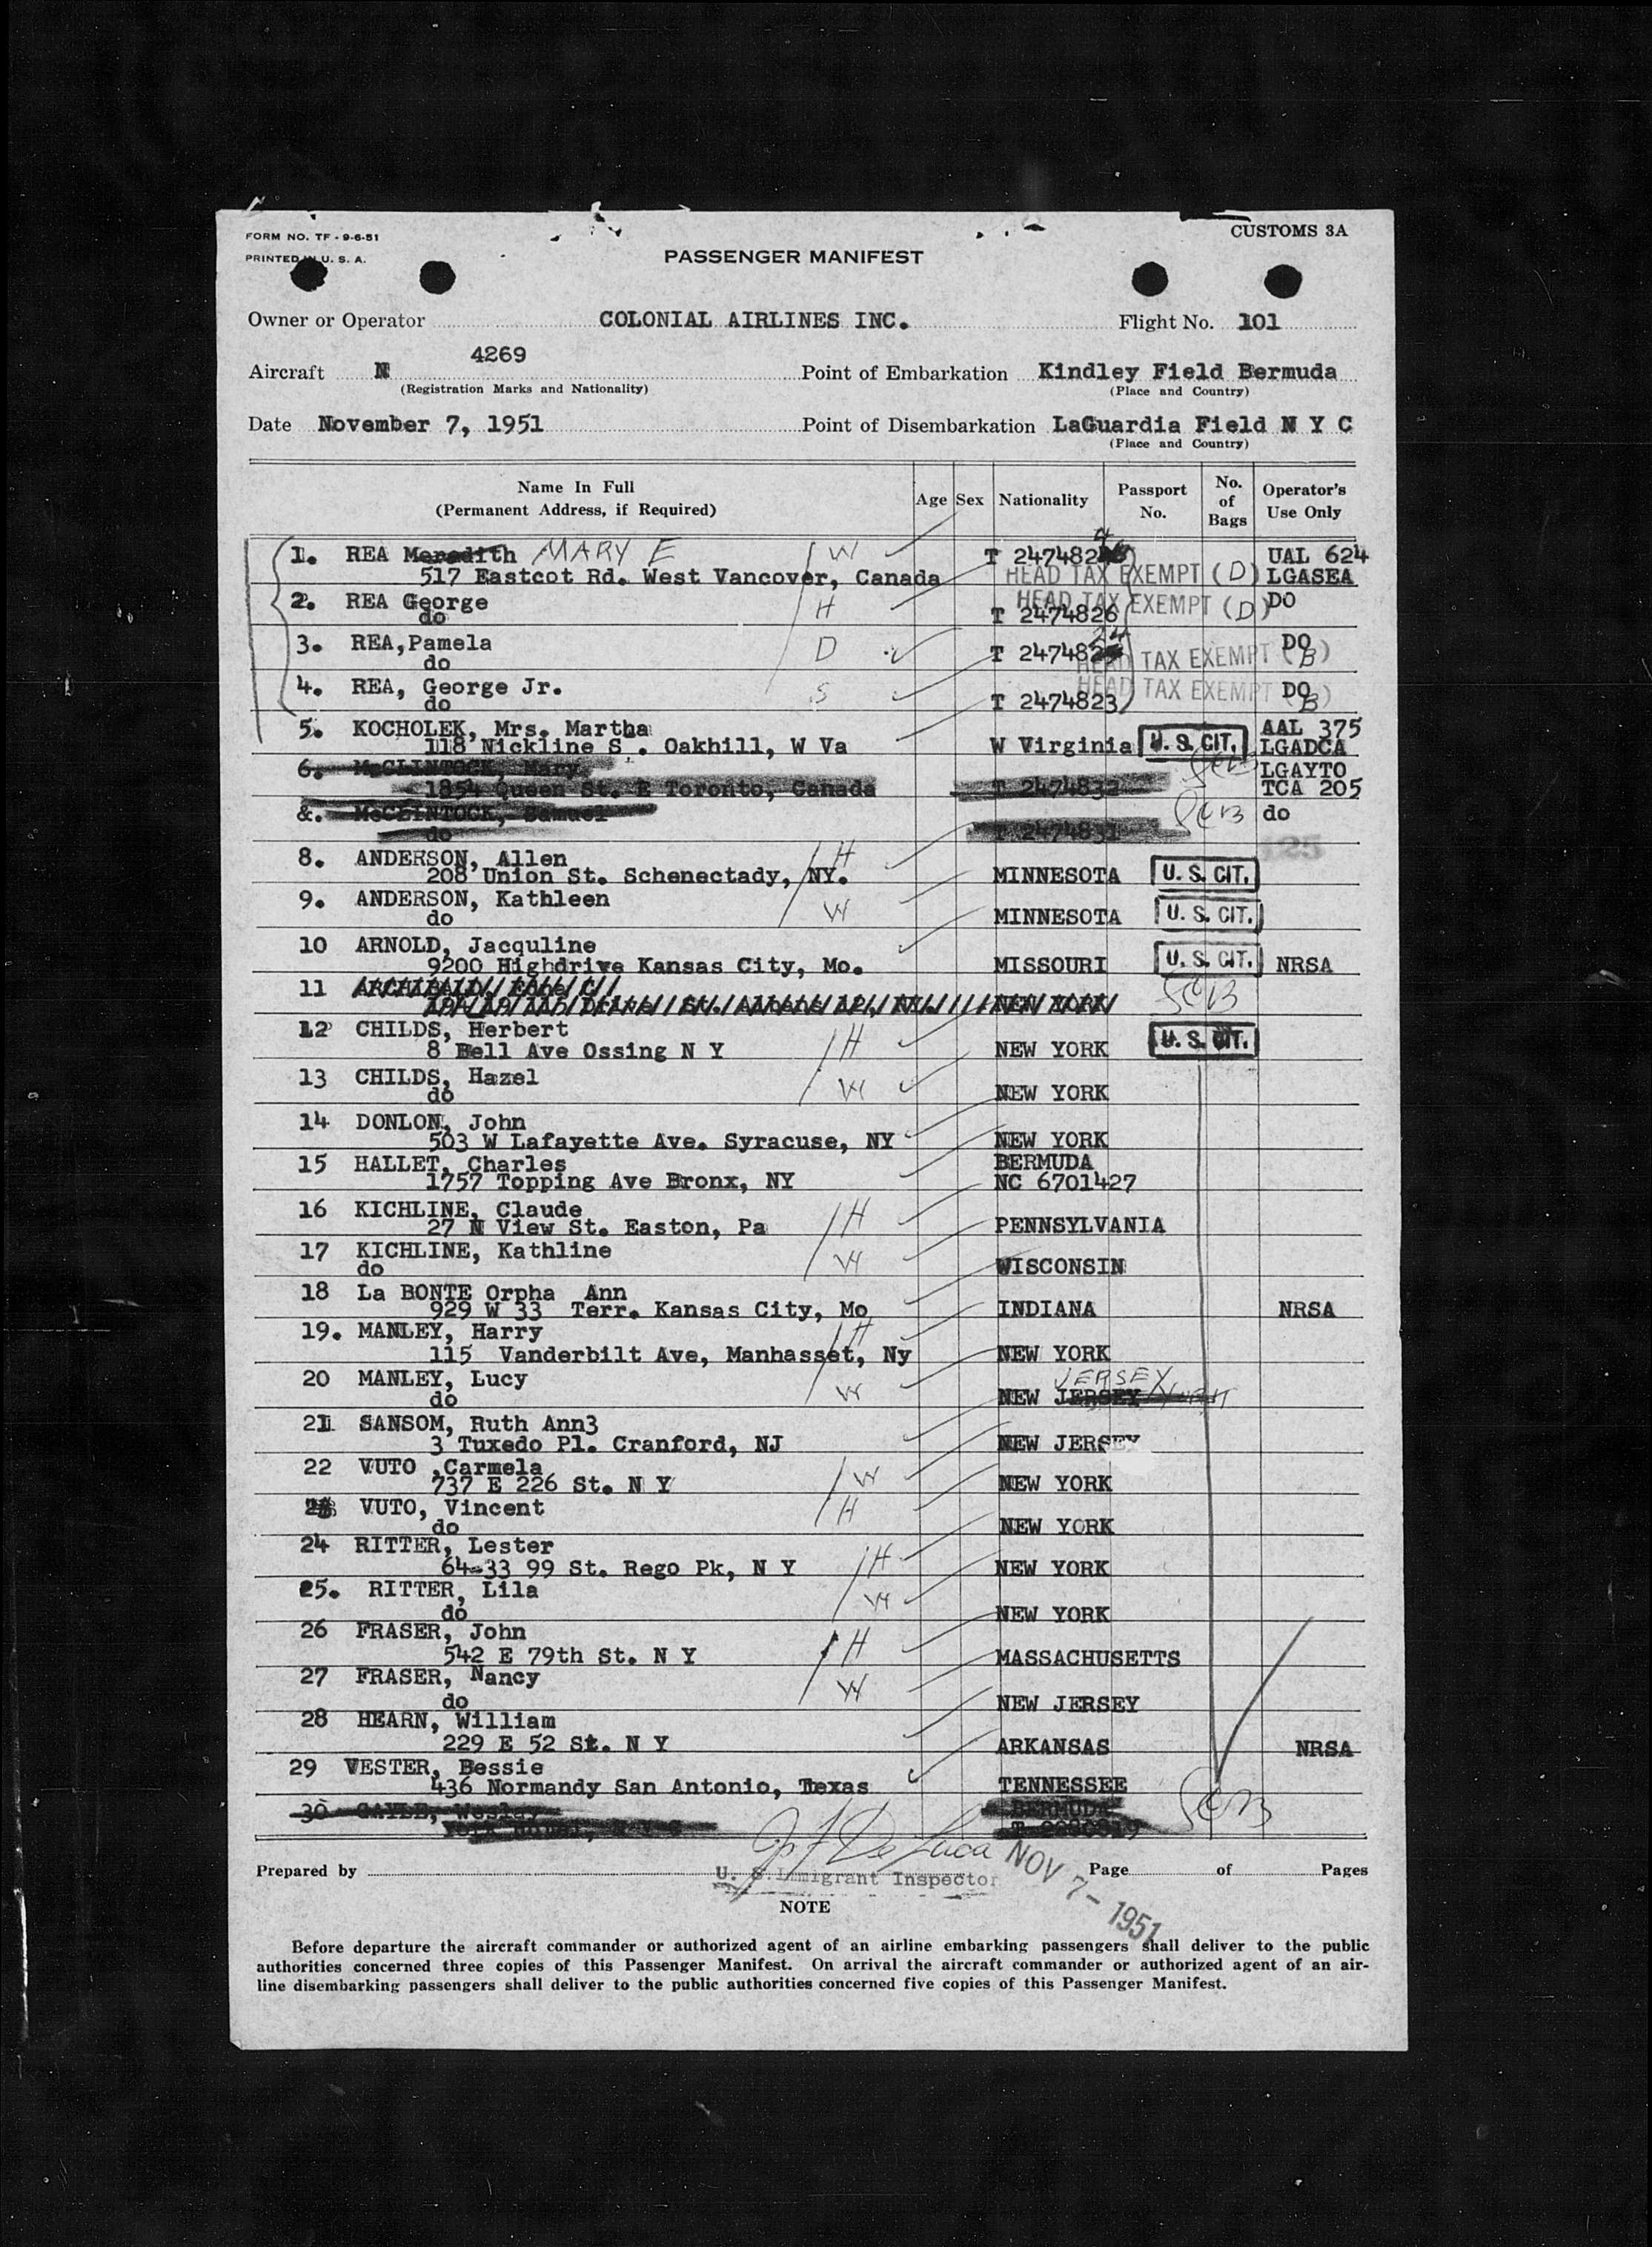 FORM NO. TF - 9-6-51
CUSTOMS 3A
PRINTED IN U. S. A.
PASSENGER MANIFEST
Owner or Operator COLONIAL AIRLINES INC. Flight No. 101
4269
Aircraft N Point of Embarkation Kindley Field Bermuda
(Registration Marks and Nationality) (Place and Country)
Date November 7, 1951 Point of Disembarkation LaGuardia Field N Y C
(Place and Country)
Name In Full (Permanent Address, if Required) Age Sex Nationality Passport No. No. of Bags Operator's Use Only
1. REA Meredith MARY E W T 247482 UAL 624
517 Eastcot Rd. West Vancover, Canada HEAD TAX EXEMPT (D) LGASEA
2. REA George H HEAD TAX EXEMPT (D) DO
do T 2474826
3. REA, Pamela D T 247482 DO
do HEAD TAX EXEMPT (B)
4. REA, George Jr. S HEAD TAX EXEMPT (B) DO
do T 2474823
5. KOCHOLEK, Mrs. Martha AAL 375
118 Nickline S . Oakhill, W Va W Virginia U. S. CIT. LGADCA
6. McCLINTOCK, Mary LGAYTO
1854 Queen St. E Toronto, Canada T 2474832 TCA 205
&. McCLINTOCK, Samuel do
do T 2474831
125
8. ANDERSON, Allen H
208 Union St. Schenectady, NY. MINNESOTA U. S. CIT.
9. ANDERSON, Kathleen W
do MINNESOTA U. S. CIT.
10 ARNOLD, Jacquline
9200 Highdrive Kansas City, Mo. MISSOURI U. S. CIT. NRSA
11
NEW YORK
12 CHILDS, Herbert H
8 Bell Ave Ossing N Y NEW YORK U. S. CIT.
13 CHILDS, Hazel W
do NEW YORK
14 DONLON, John
503 W Lafayette Ave. Syracuse, NY NEW YORK
15 HALLET, Charles BERMUDA
1757 Topping Ave Bronx, NY NC 6701427
16 KICHLINE, Claude H
27 N View St. Easton, Pa PENNSYLVANIA
17 KICHLINE, Kathline W
do WISCONSIN
18 La BONTE Orpha Ann
929 W 33 Terr. Kansas City, Mo INDIANA NRSA
19. MANLEY, Harry H
115 Vanderbilt Ave, Manhasset, Ny NEW YORK
20 MANLEY, Lucy W JERSEY
do NEW JERSEY
21 SANSOM, Ruth Ann3
3 Tuxedo Pl. Cranford, NJ NEW JERSEY
22 VUTO ,Carmela W
737 E 226 St. N Y NEW YORK
VUTO, Vincent H
do NEW YORK
24 RITTER, Lester H
64-33 99 St. Rego Pk, N Y NEW YORK
25. RITTER, Lila W
do NEW YORK
26 FRASER, John H
542 E 79th St. N Y MASSACHUSETTS
27 FRASER, Nancy W
do NEW JERSEY
28 HEARN, William
229 E 52 St. N Y ARKANSAS NRSA
29 VESTER, Bessie
436 Normandy San Antonio, Texas TENNESSEE
30 GAYLE, Wesley BERMUDA
Prepared by U. S. Immigrant Inspector NOV 7 - 1951 Page of Pages
NOTE
Before departure the aircraft commander or authorized agent of an airline embarking passengers shall deliver to the public
authorities concerned three copies of this Passenger Manifest. On arrival the aircraft commander or authorized agent of an air-
line disembarking passengers shall deliver to the public authorities concerned five copies of this Passenger Manifest.